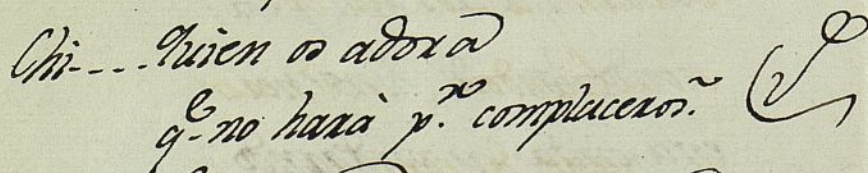 Chi---- Quien os adora
qe no harà p.r complaceros.